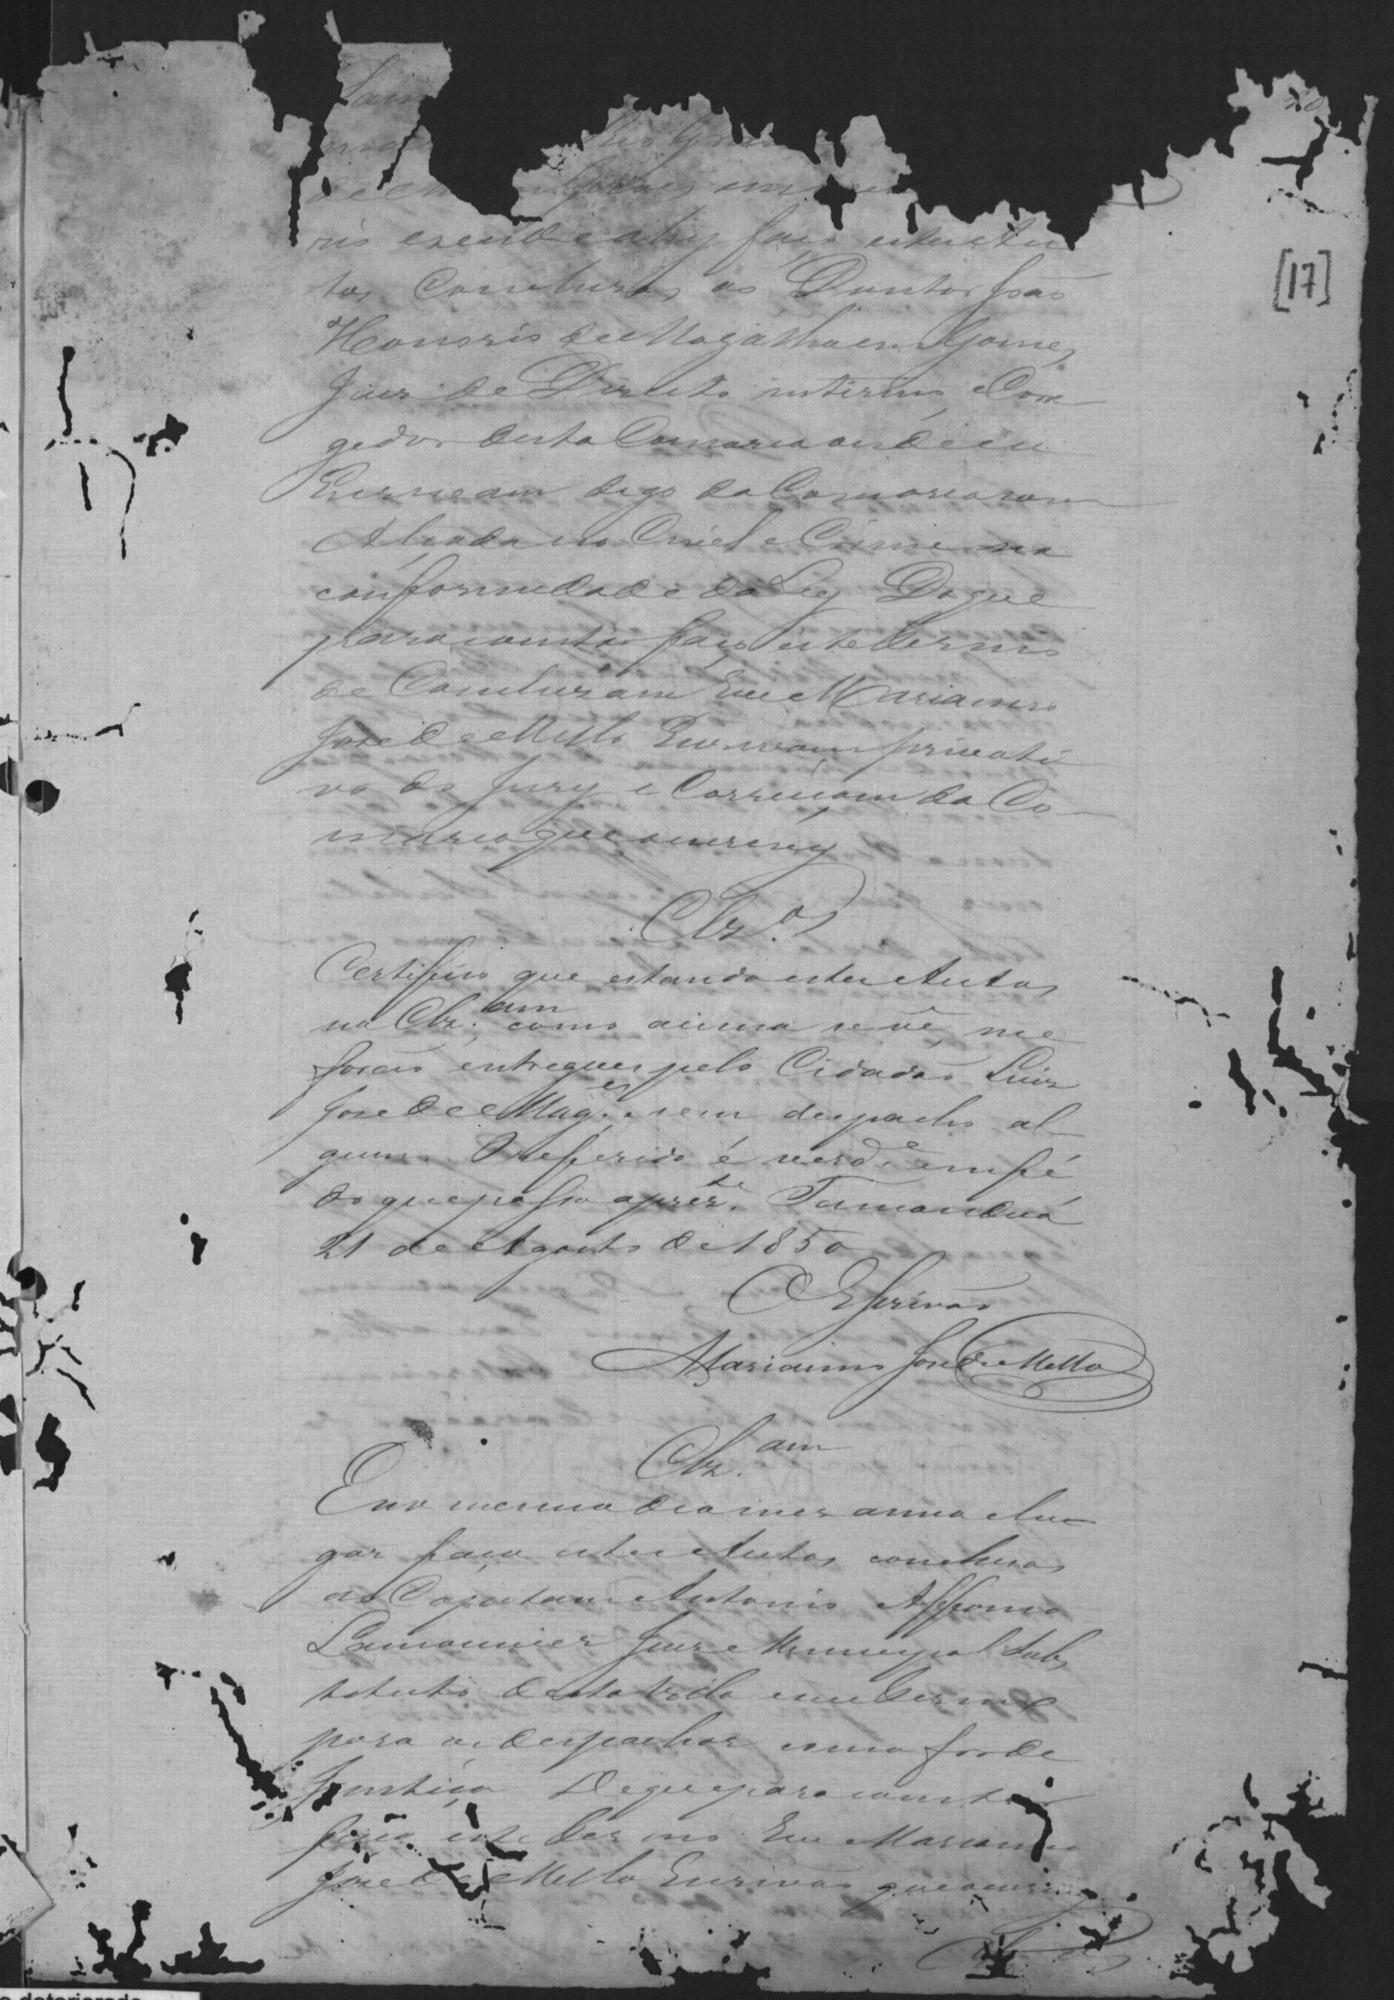 20
[17]
rio e sendo ahy faço estes Au
tos Concluzos ao Doutor João
Honorio de Magalhaens Gomes
Juiz de Direito interino, e Corre
gedor desta Comarca onde eu
Escrivam digo da Comarca com
Alçada no Civel e Crime na
conformidade da Ley Do que
para constar faço este termo
de Concluzam Eu Marianno
José de Mello Escrivam privati
vo do Jury e Correiçam da Co-
marca que o escrevy
Clz.os
Certifico que estando estes Autos
na Clz.am como acima se vê, me
forão entregues pelo Cidadão Luiz
José de Mag.es, sem despacho al-
gum. O referido é verd.e em fé
do que passo a prez.te Tamanduá
21 de Agosto de 1850
O Escrivão
Marianno José de Mello
Clz.am
E no mesmo dia mez anno e lu-
gar faço estes Autos concluzos
ao Capitam Antonio Affonso
Lamounier Juiz Municipal Subs
tituto desta Villa e seu termo
para os despachar como for de
Justiça De que para constar
faço este termo Eu Marianno
José de Mello Escrivão que o escrevy
o deteriorado